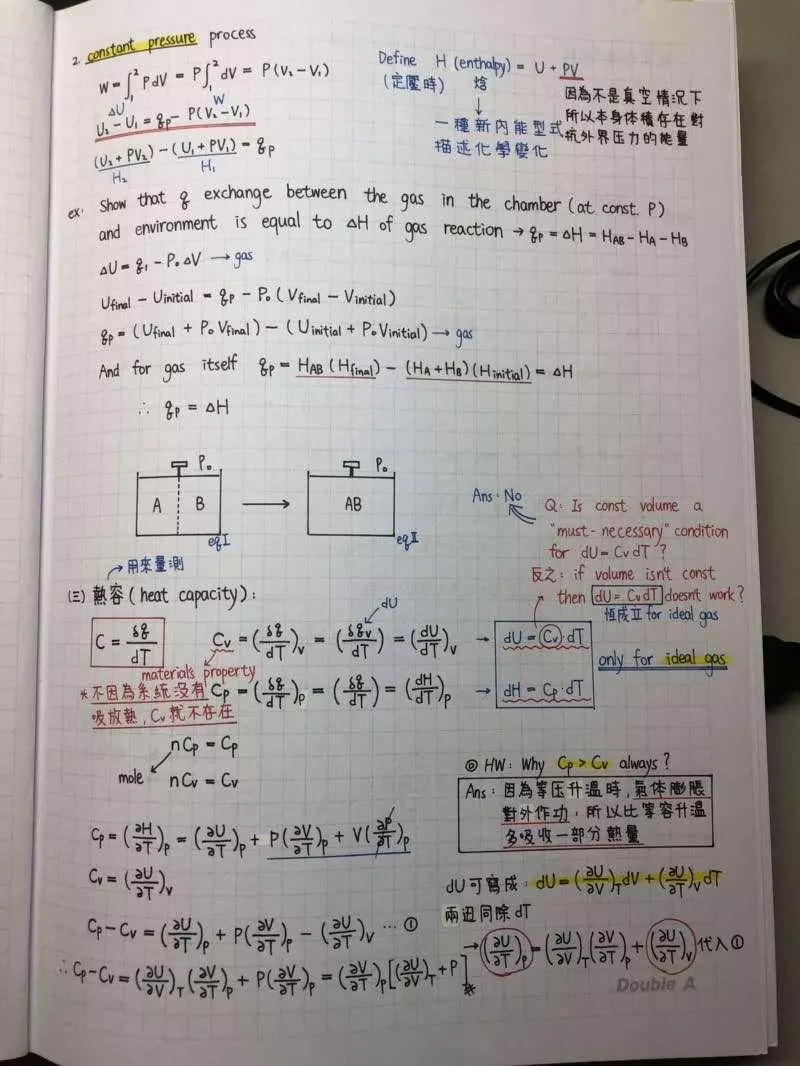 2. constant pressure process
W = ∫₁² PdV = P∫₁² dV = P(V₂ − V₁)
ΔU W
U₂ − U₁ = q_p − P(V₂ − V₁)
(U₂ + PV₂) − (U₁ + PV₁) = q_p
H₂ H₁
Define H (enthalpy) = U + PV
(定壓時) 焓
↓
一種新內能型式
描述化學變化
因為不是真空情況下
所以本身体積存在對
抗外界压力的能量
ex. Show that q exchange between the gas in the chamber (at const. P)
and environment is equal to ΔH of gas reaction → q_p = ΔH = H_AB − H_A − H_B
ΔU = q₁ − P₀ΔV → gas
U_final − U_initial = q_p − P₀(V_final − V_initial)
q_p = (U_final + P₀V_final) − (U_initial + P₀V_initial) → gas
And for gas itself q_p = H_AB (H_final) − (H_A + H_B)(H_initial) = ΔH
∴ q_p = ΔH
P₀ P₀
A B → AB
eqI eqII
Ans: No
Q: Is const volume a
"must-necessary" condition
for dU = CvdT ?
反之: if volume isn't const
then dU = CvdT doesn't work?
恆成立 for ideal gas
→ 用來量測
(三) 熱容 (heat capacity):
dU
C = δq/dT Cv = (δq/dT)_V = (δq_v/dT) = (dU/dT)_V → dU = Cv·dT
material's property
only for ideal gas
*不因為系統沒有
吸放熱, Cv就不存在
Cp = (δq/dT)_p = (δq/dT) = (dH/dT)_p → dH = Cp·dT
nCp = Cp
mole nCv = Cv
◎ HW: Why Cp > Cv always?
Ans: 因為等压升溫時, 氣体膨脹
對外作功, 所以比等容升溫
多吸收一部分熱量
Cp = (∂H/∂T)_p = (∂U/∂T)_p + P(∂V/∂T)_p + V(∂P/∂T)_p
Cv = (∂U/∂T)_V
dU可寫成: dU = (∂U/∂V)_T dV + (∂U/∂T)_V dT
兩邊同除dT
Cp − Cv = (∂U/∂T)_p + P(∂V/∂T)_p − (∂U/∂T)_V ⋯ ①
→ (∂U/∂T)_p = (∂U/∂V)_T (∂V/∂T)_p + (∂U/∂T)_V 代入①
∴ Cp − Cv = (∂U/∂V)_T (∂V/∂T)_p + P(∂V/∂T)_p = (∂V/∂T)_p [(∂U/∂V)_T + P]*
Double A